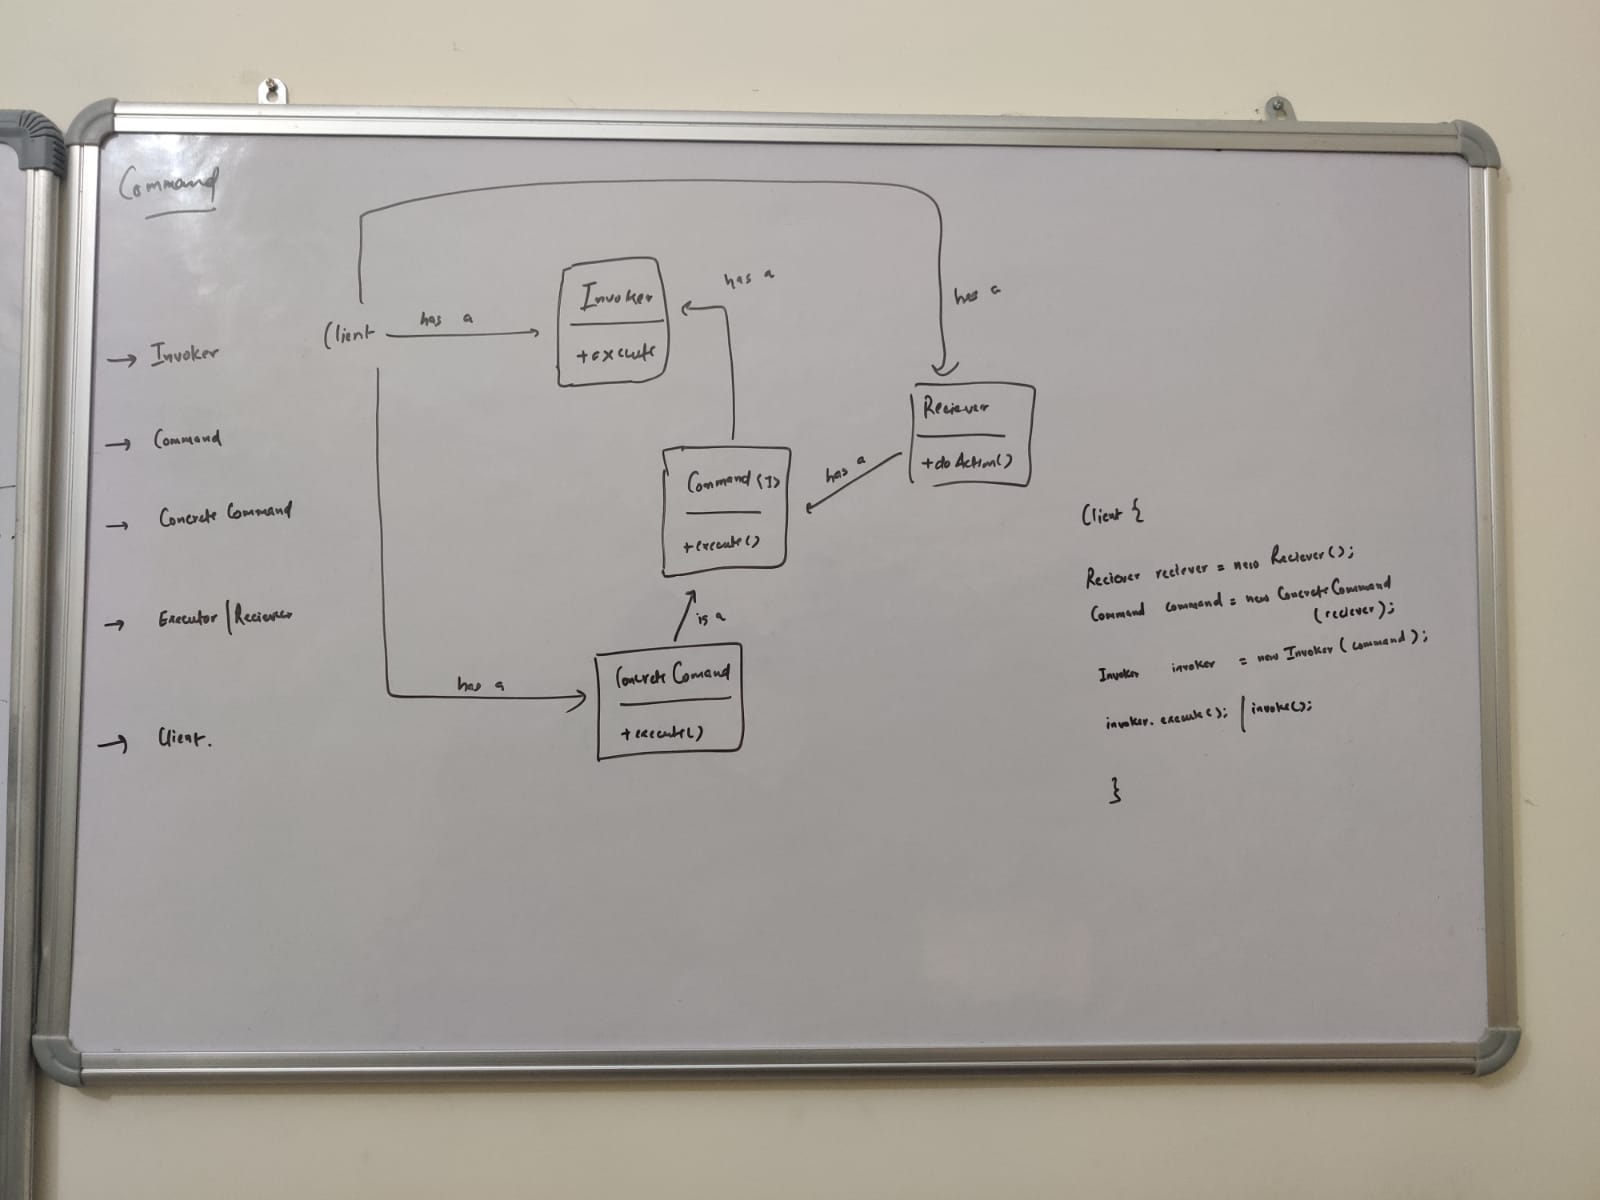 Command
→ Invoker
→ Command
→ Concrete Command
→ Executor | Reciever
→ Client.
Client
has a
Invoker
+ execute
has a
has a
Reciever
+ do Action()
has a
Command <I>
+ execute()
is a
has a
Concrete Comand
+ execute()
Client {
Reciever reciever = new Reciever();
Command command = new Concrete Command
(reciever);
Invoker invoker = new Invoker (command);
invoker. execute(); | invoke();
}